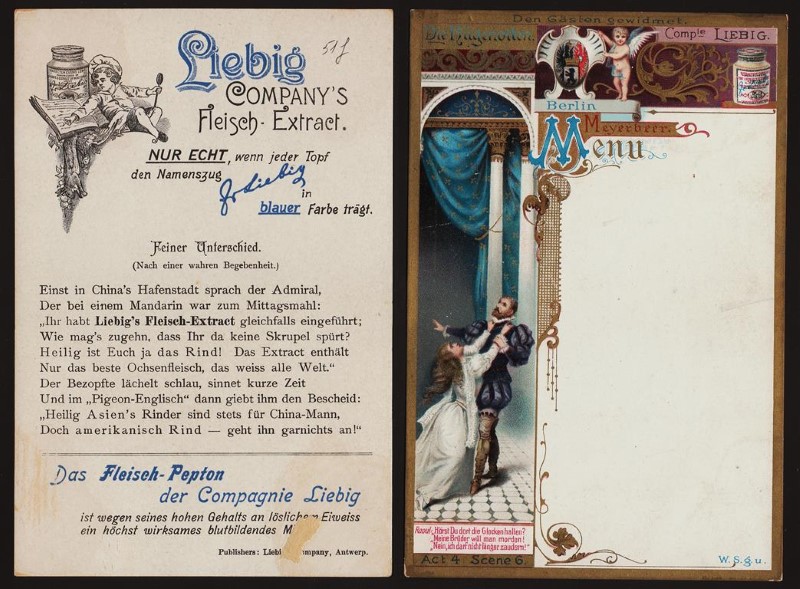 Liebig
COMPANY'S
Fleisch-Extract.
51f
NUR ECHT, wenn jeder Topf
den Namenszug
JvLiebig
in
blauer Farbe trägt.
Feiner Unterschied.
(Nach einer wahren Begebenheit.)
Einst in China's Hafenstadt sprach der Admiral,
Der bei einem Mandarin war zum Mittagsmahl:
„Ihr habt Liebig's Fleisch-Extract gleichfalls eingeführt;
Wie mag's zugehn, dass Ihr da keine Skrupel spürt?
Heilig ist Euch ja das Rind! Das Extract enthält
Nur das beste Ochsenfleisch, das weiss alle Welt."
Der Bezopfte lächelt schlau, sinnet kurze Zeit
Und im „Pigeon-Englisch" dann giebt ihm den Bescheid:
„Heilig Asien's Rinder sind stets für China-Mann,
Doch amerikanisch Rind — geht ihn garnichts an!"
Das Fleisch-Pepton
der Compagnie Liebig
ist wegen seines hohen Gehalts an löslichem Eiweiss
ein höchst wirksames blutbildendes M
Publishers: Liebi ompany, Antwerp.
Den Gästen gewidmet.
Die Hugenotten.
Compie LIEBIG.
Berlin
Meyerbeer.
Menu
Raoul: „Hörst Du dort die Glocken hallen?
„Meine Brüder will man morden!
„Nein, ich darf nicht länger zaudern!"
Act 4 Scene 6.
W.S.g.u.